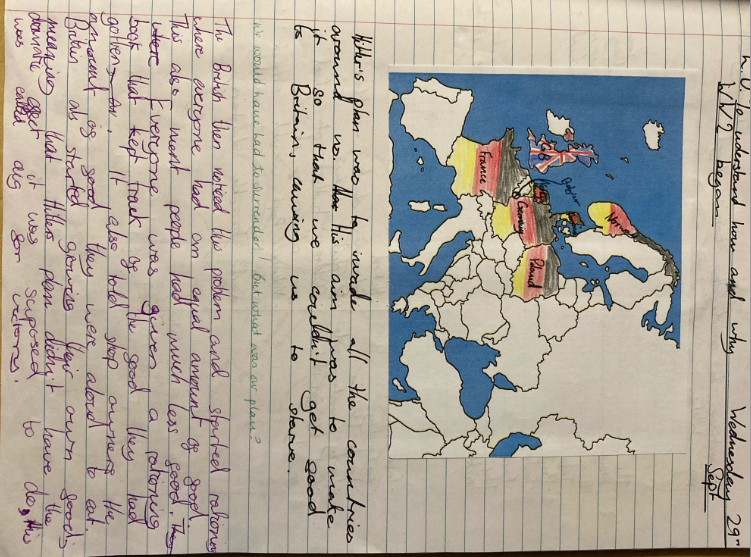 L.O. To understand how and why Wednesday 29th
WW2 began Sept
Norway
GB
Belgium
Germany
Poland
France
Hitler's plan was to invade all the countries
around us. His aim was to make
it so that we couldn't get food
to Britain, causing us to starve.
we would have had to surrender! But what was our plan?
The British then noticed this problem and started rationing
where everyone had an equal amount of food.
This also ment people had much less food.
Everyone was given a rationing
book that kept track of the food they had
gotten. It also told shop owners the
amount of food they were aloud to eat.
Britain als started growing their own food;
meaning that Hitlers plan didn't have the
dramatic effect it was suposed to do, this
was called